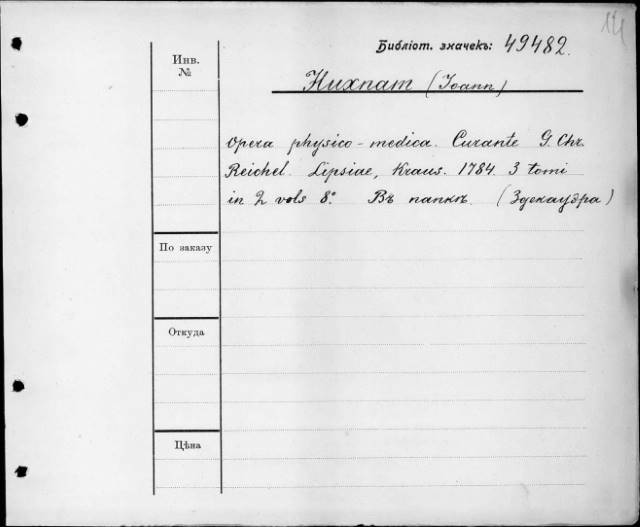 14
Библіот. значекъ: 49482.
Инв.
№
Huxham (Joann)
Opera physico-medica. Curante G. Chr.
Reichel. Lipsiae, Kraus. 1784. 3 tomi
in 2 vols 8º. Въ папкѣ. (Здекаудра)
По заказу
Откуда
Цѣна